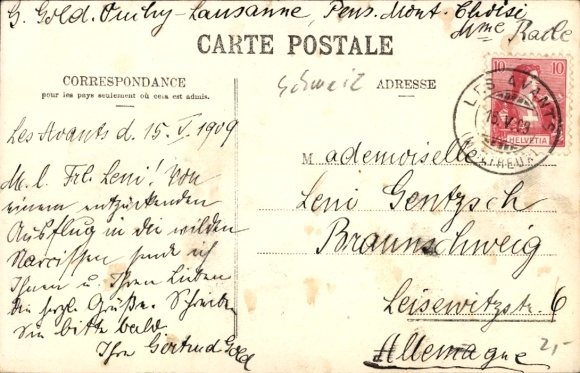 G. Gold. Ouchy-Lausanne, Pens. Mont-Choisi
Mme Rade
CARTE POSTALE
CORRESPONDANCE
pour les pays seulement où cela est admis.
Schweiz
ADRESSE
10 10
HELVETIA
LES AVANTS
15.V.09
(MONTREUX)
Les Avants d. 15. V. 1909
M. l. Frl. Leni! Von
einem entzückenden
Ausflug in die wilden
Narcissen sende ich
Ihnen u. Ihren Lieben
die herzl. Grüße. Schreiben
Sie bitte bald
Ihre Gertrud Gold
Mademoiselle
Leni Gentzsch
Braunschweig
Leisewitzstr. 6
Allemagne
2,-